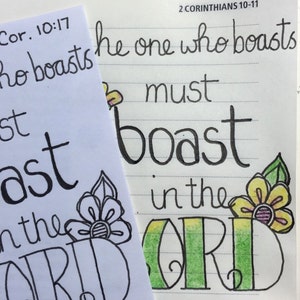 Cor. 10:17
who boasts
st
ast
in the
ORD
2 CORINTHIANS 10-11
he one who boasts
must
boast
in the
LORD